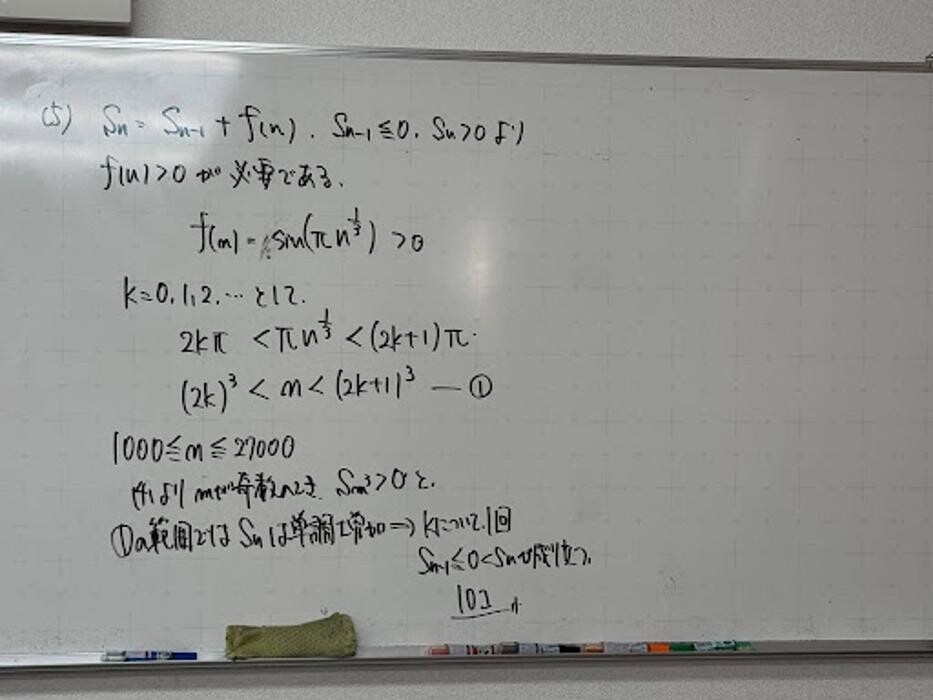 (5) Sn = Sn-1 + f(n). Sn-1 ≦ 0. Sn > 0 より
f(n) > 0 が必要である.
f(n) = sin(πn^{1/3}) > 0
k=0,1,2,… として.
2kπ < πn^{1/3} < (2k+1)π.
(2k)^3 < n < (2k+1)^3 — ①
1000 ≦ n ≦ 27000
(4)より mが奇数のとき Sm^3 > 0 と.
①の範囲では Snは単調で増加 ⇒ kについて1回
Sn-1 ≦ 0 < Snが成り立つ.
10コ